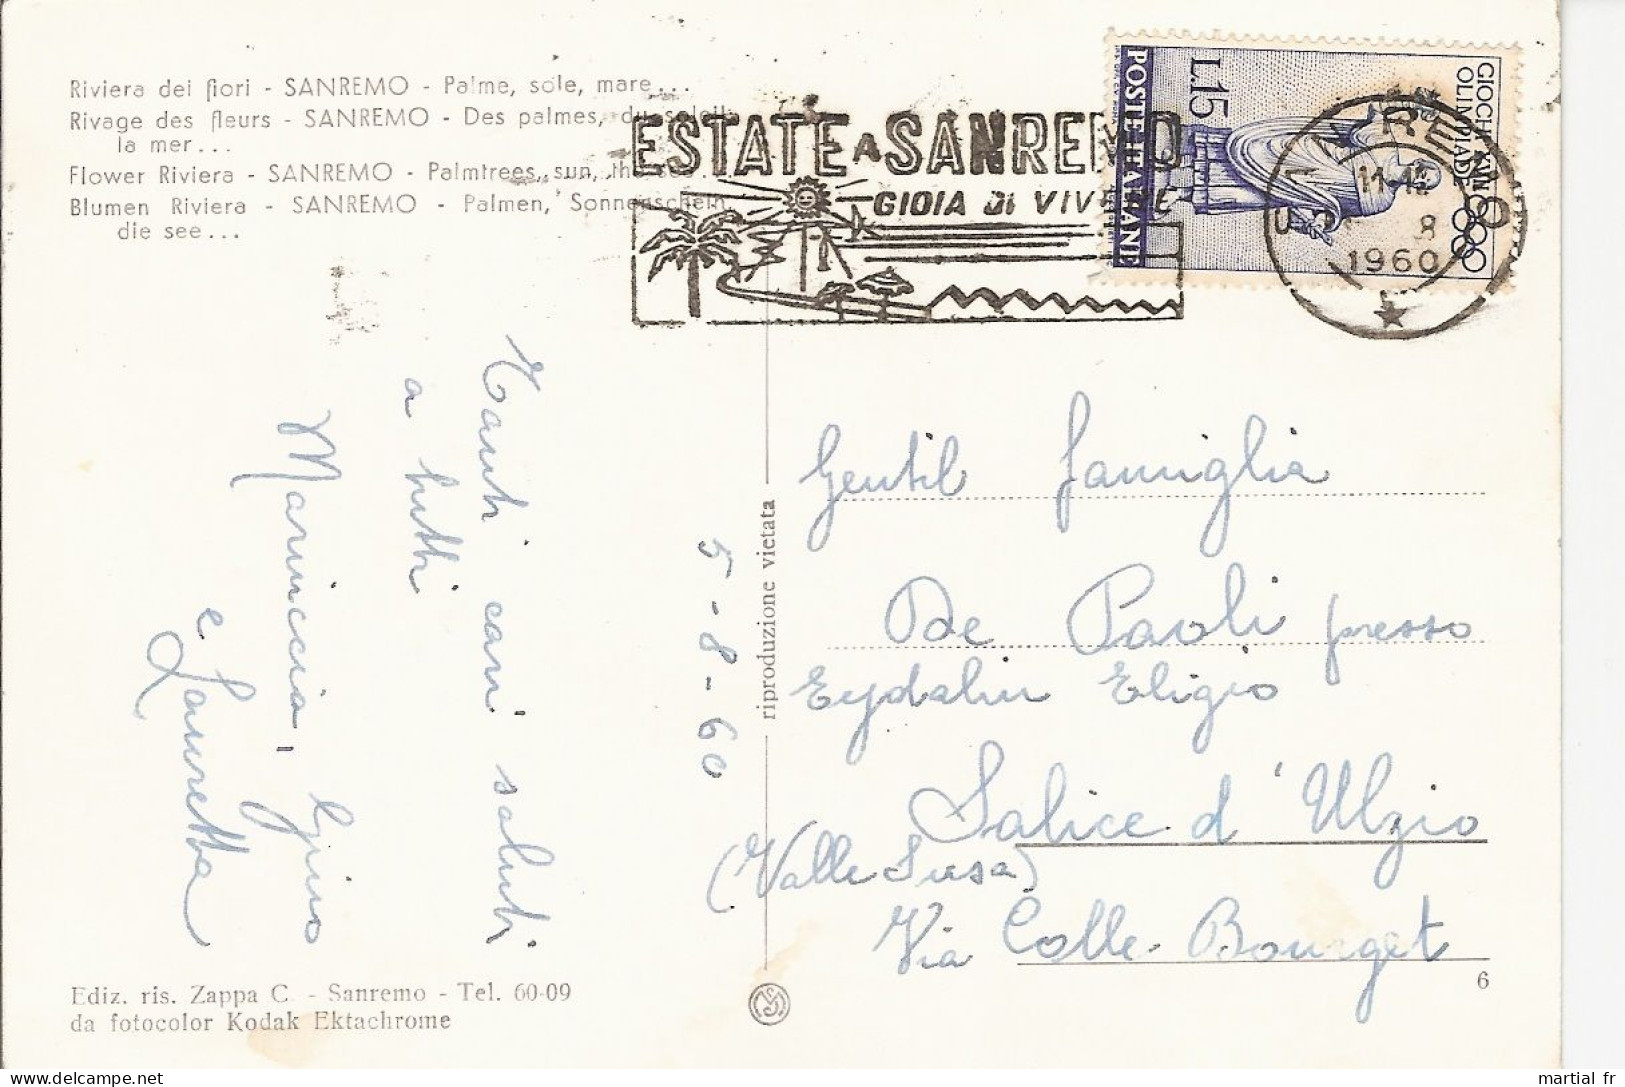 Riviera dei fiori - SANREMO - Palme, sole, mare...
Rivage des fleurs - SANREMO - Des palmes, du soleil,
la mer...
Flower Riviera - SANREMO - Palmtrees, sun, the sea...
Blumen Riviera - SANREMO - Palmen, Sonnenschein,
die see...
ESTATE A SANREMO
GIOIA DI VIVERE
POSTE ITALIANE
L.15
GIOCHI
OLIMPIADE
SAN REMO
8
1960
Tanti cari saluti
a tutti
Mariuccia, Gino
e Lauretta
5-8-60
riproduzione vietata
Gentil famiglia
De Paoli presso
Eydallin Eligio
Salice d'Ulzio
(Valle Susa)
Via Colle Bourget
6
Ediz. ris. Zappa C. - Sanremo - Tel. 60-09
da fotocolor Kodak Ektachrome
martial fr